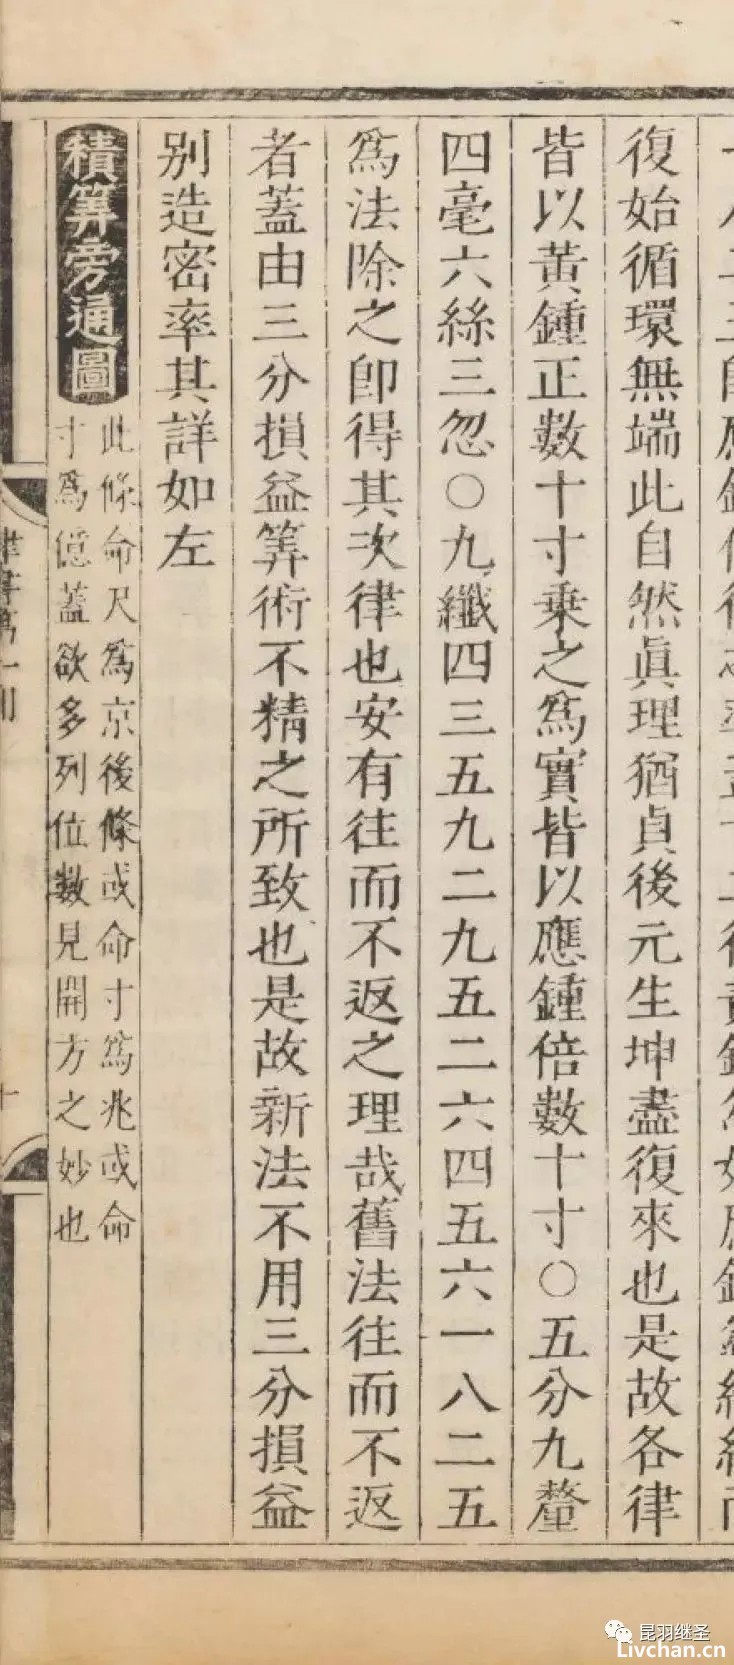 復始循環無端此自然眞理猶貞後元生坤盡復來也是故各律
皆以黃鍾正數十寸乗之爲實皆以應鍾倍數十寸○五分九釐
四毫六絲三忽○九纖四三五九二九五二六四五六一八二五
爲法除之卽得其次律也安有往而不返之理哉舊法往而不返
者蓋由三分損益筭術不精之所致也是故新法不用三分損益
别造密率其詳如左
積筭旁通圖
此條命尺爲京後條或命寸爲兆或命
寸爲億蓋欲多列位數見開方之妙也
昆羽继圣
Livchan.cn